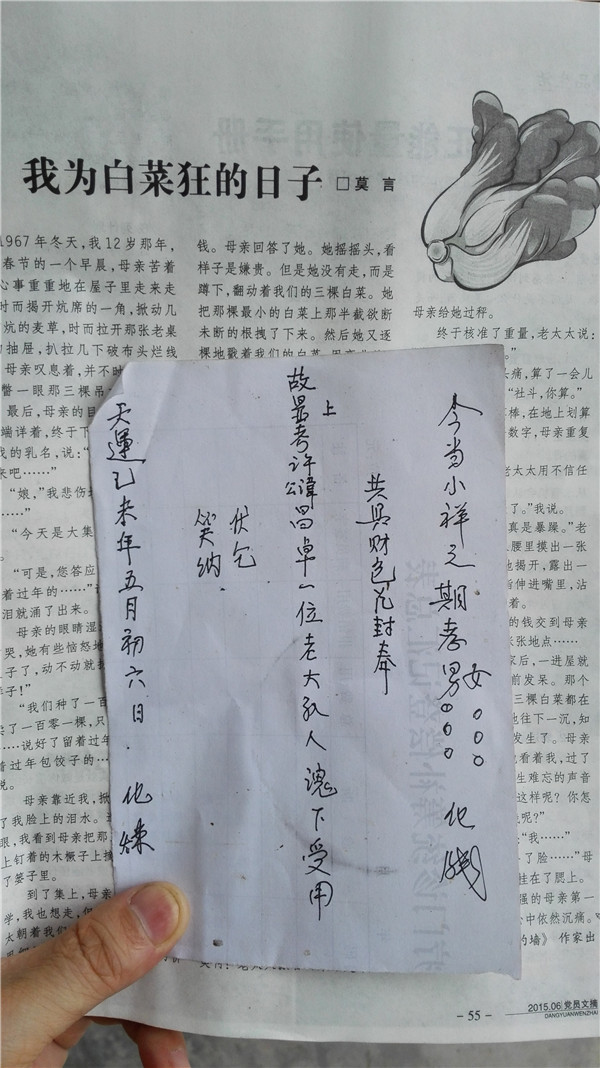 我为白菜狂的日子 □莫 言
1967年冬天，我12岁那年，
春节的一个早晨，母亲苦着
心事重重地在屋子里走来走
时而揭开炕席的一角，掀动几
炕的麦草，时而拉开那张老桌
的抽屉，扒拉几下破布头烂线
母亲叹息着，并不时
瞥一眼那三棵吊
最后，母亲的目
端详着，终于下
我的乳名，说：“
来吧……”
“娘，”我悲伤
……”
“今天是大集
“可是，您答应
着过年的……”
泪就涌了出来。
母亲的眼睛湿
哭，她有些恼怒地
子了，动不动就
样子！”
“我们种了一百
卖了一百零一棵，只
……说好了留着过年
着过年包饺子的…
说。
母亲靠近我，掀
了我脸上的泪水。
眼，我看到母亲把那
上钉着的木橛子上摘
了篓子里。
到了集上，母亲
学，我也想走，但
太朝着我们
钱。母亲回答了她。她摇摇头，看
样子是嫌贵。但是她没有走，而是
蹲下，翻动着我们的三棵白菜。她
把那棵最小的白菜上那半截欲断
未断的根拽了下来。然后她又逐
棵地戳着我们的白菜
母亲给她过秤。
终于核准了重量，老太太说：
头痛，算了一会儿
“社斗，你算。”
棒，在地上划算
数字，母亲重复
老太太用不信任
了。”我说。
真是暴躁。”老
腰里摸出一张
地揭开，露出一
指伸进嘴里，沾
着。
的钱交到母亲
张张地点……
家后，一进屋就
前发呆。那个
三棵白菜都在
地往下一沉，知
发生了。母亲
也看着我，过了
生难忘的声音
这样呢？你怎
呢？”
“我……”
了脸……”母
挂在了腮上。
强的母亲第一
心中依然沉痛。
的墙》 作家出
今当小祥之期孝男女○○○ ○○○ 化
共具财包 封奉
上
故显考许公讳四卓一位老大 人魂下受用
伏乞
笑纳
天運乙未年五月初六日 化煉
- 55 -
2015.06 党员文摘
DANGYUANWENZHAI